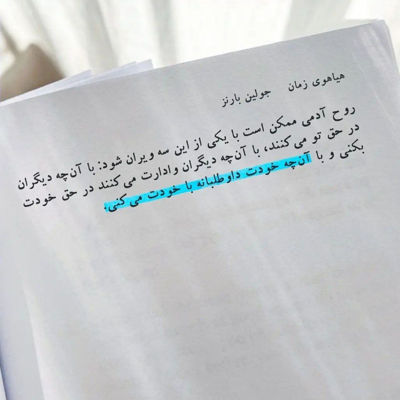 هیاهوی زمان جولین بارنز
روح آدمی ممکن است با یکی از این سه ویران شود: با آن‌چه دیگران
در حق تو می‌کنند، با آن‌چه دیگران وادارت می‌کنند در حق خودت
بکنی و با آن‌چه خودت داوطلبانه با خودت می‌کنی.